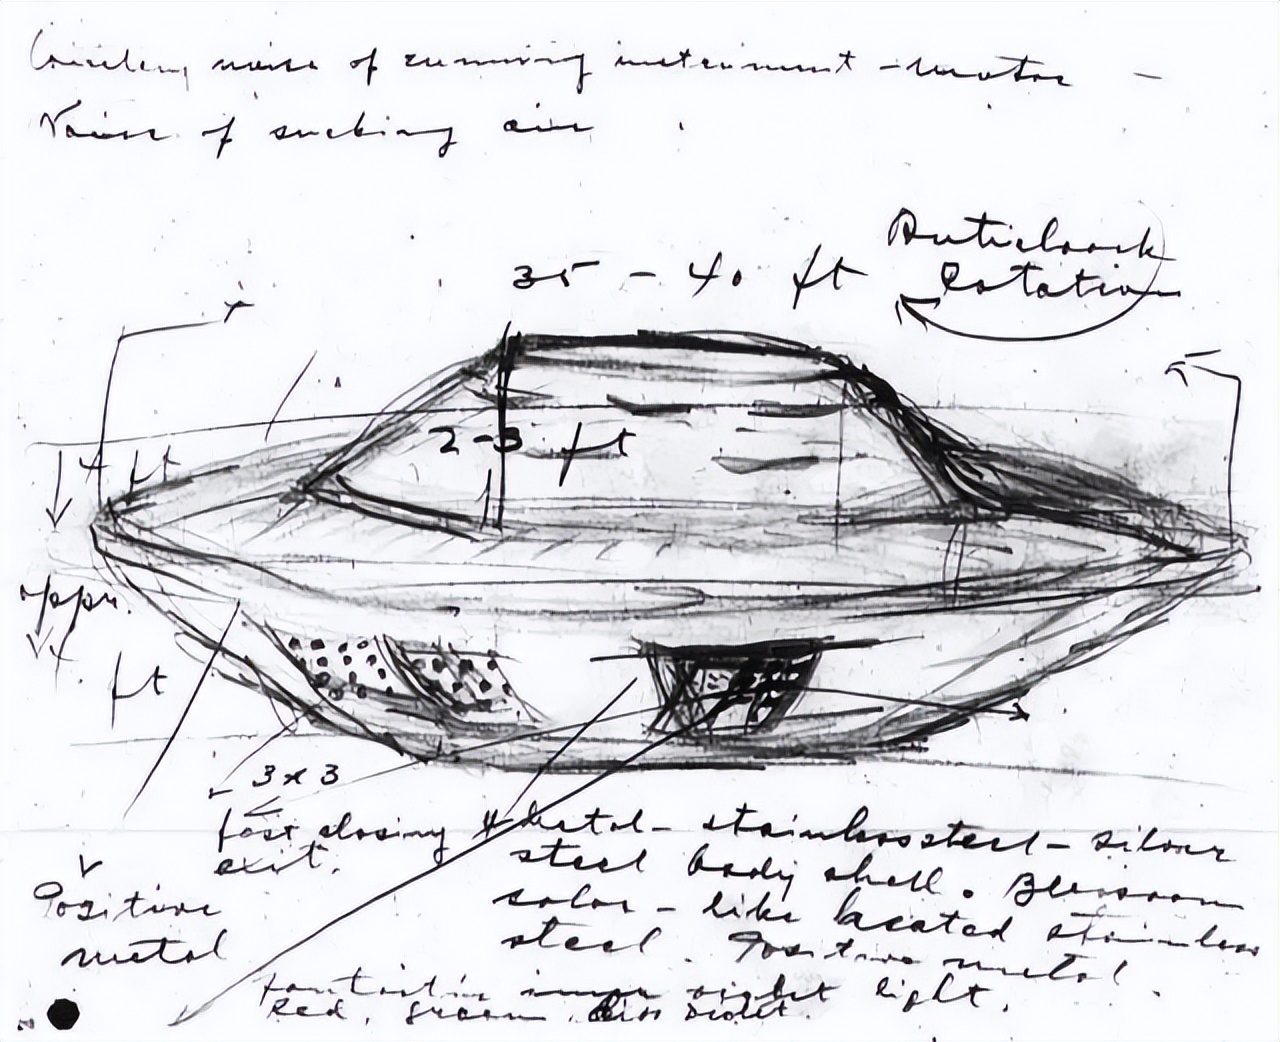 noise of running instrument - motor -
Noise of sucking air
Anticlock
Rotation
35 - 40 ft
2-3 ft
4 ft
appr.
4 ft
3x3
fast closing
exit.
Positive
metal
Metal - stainless steel - silver
steel body shell.
color - like heated stainless
steel. Positive metal.
Fantastic inner violet light.
Red, green, violet.